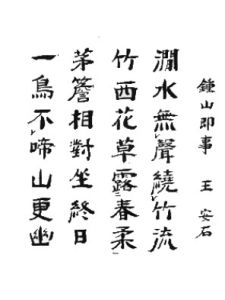 鍾山即事　王安石
澗水無聲繞竹流
竹西花草露春柔
茅簷相對坐終日
一鳥不啼山更幽